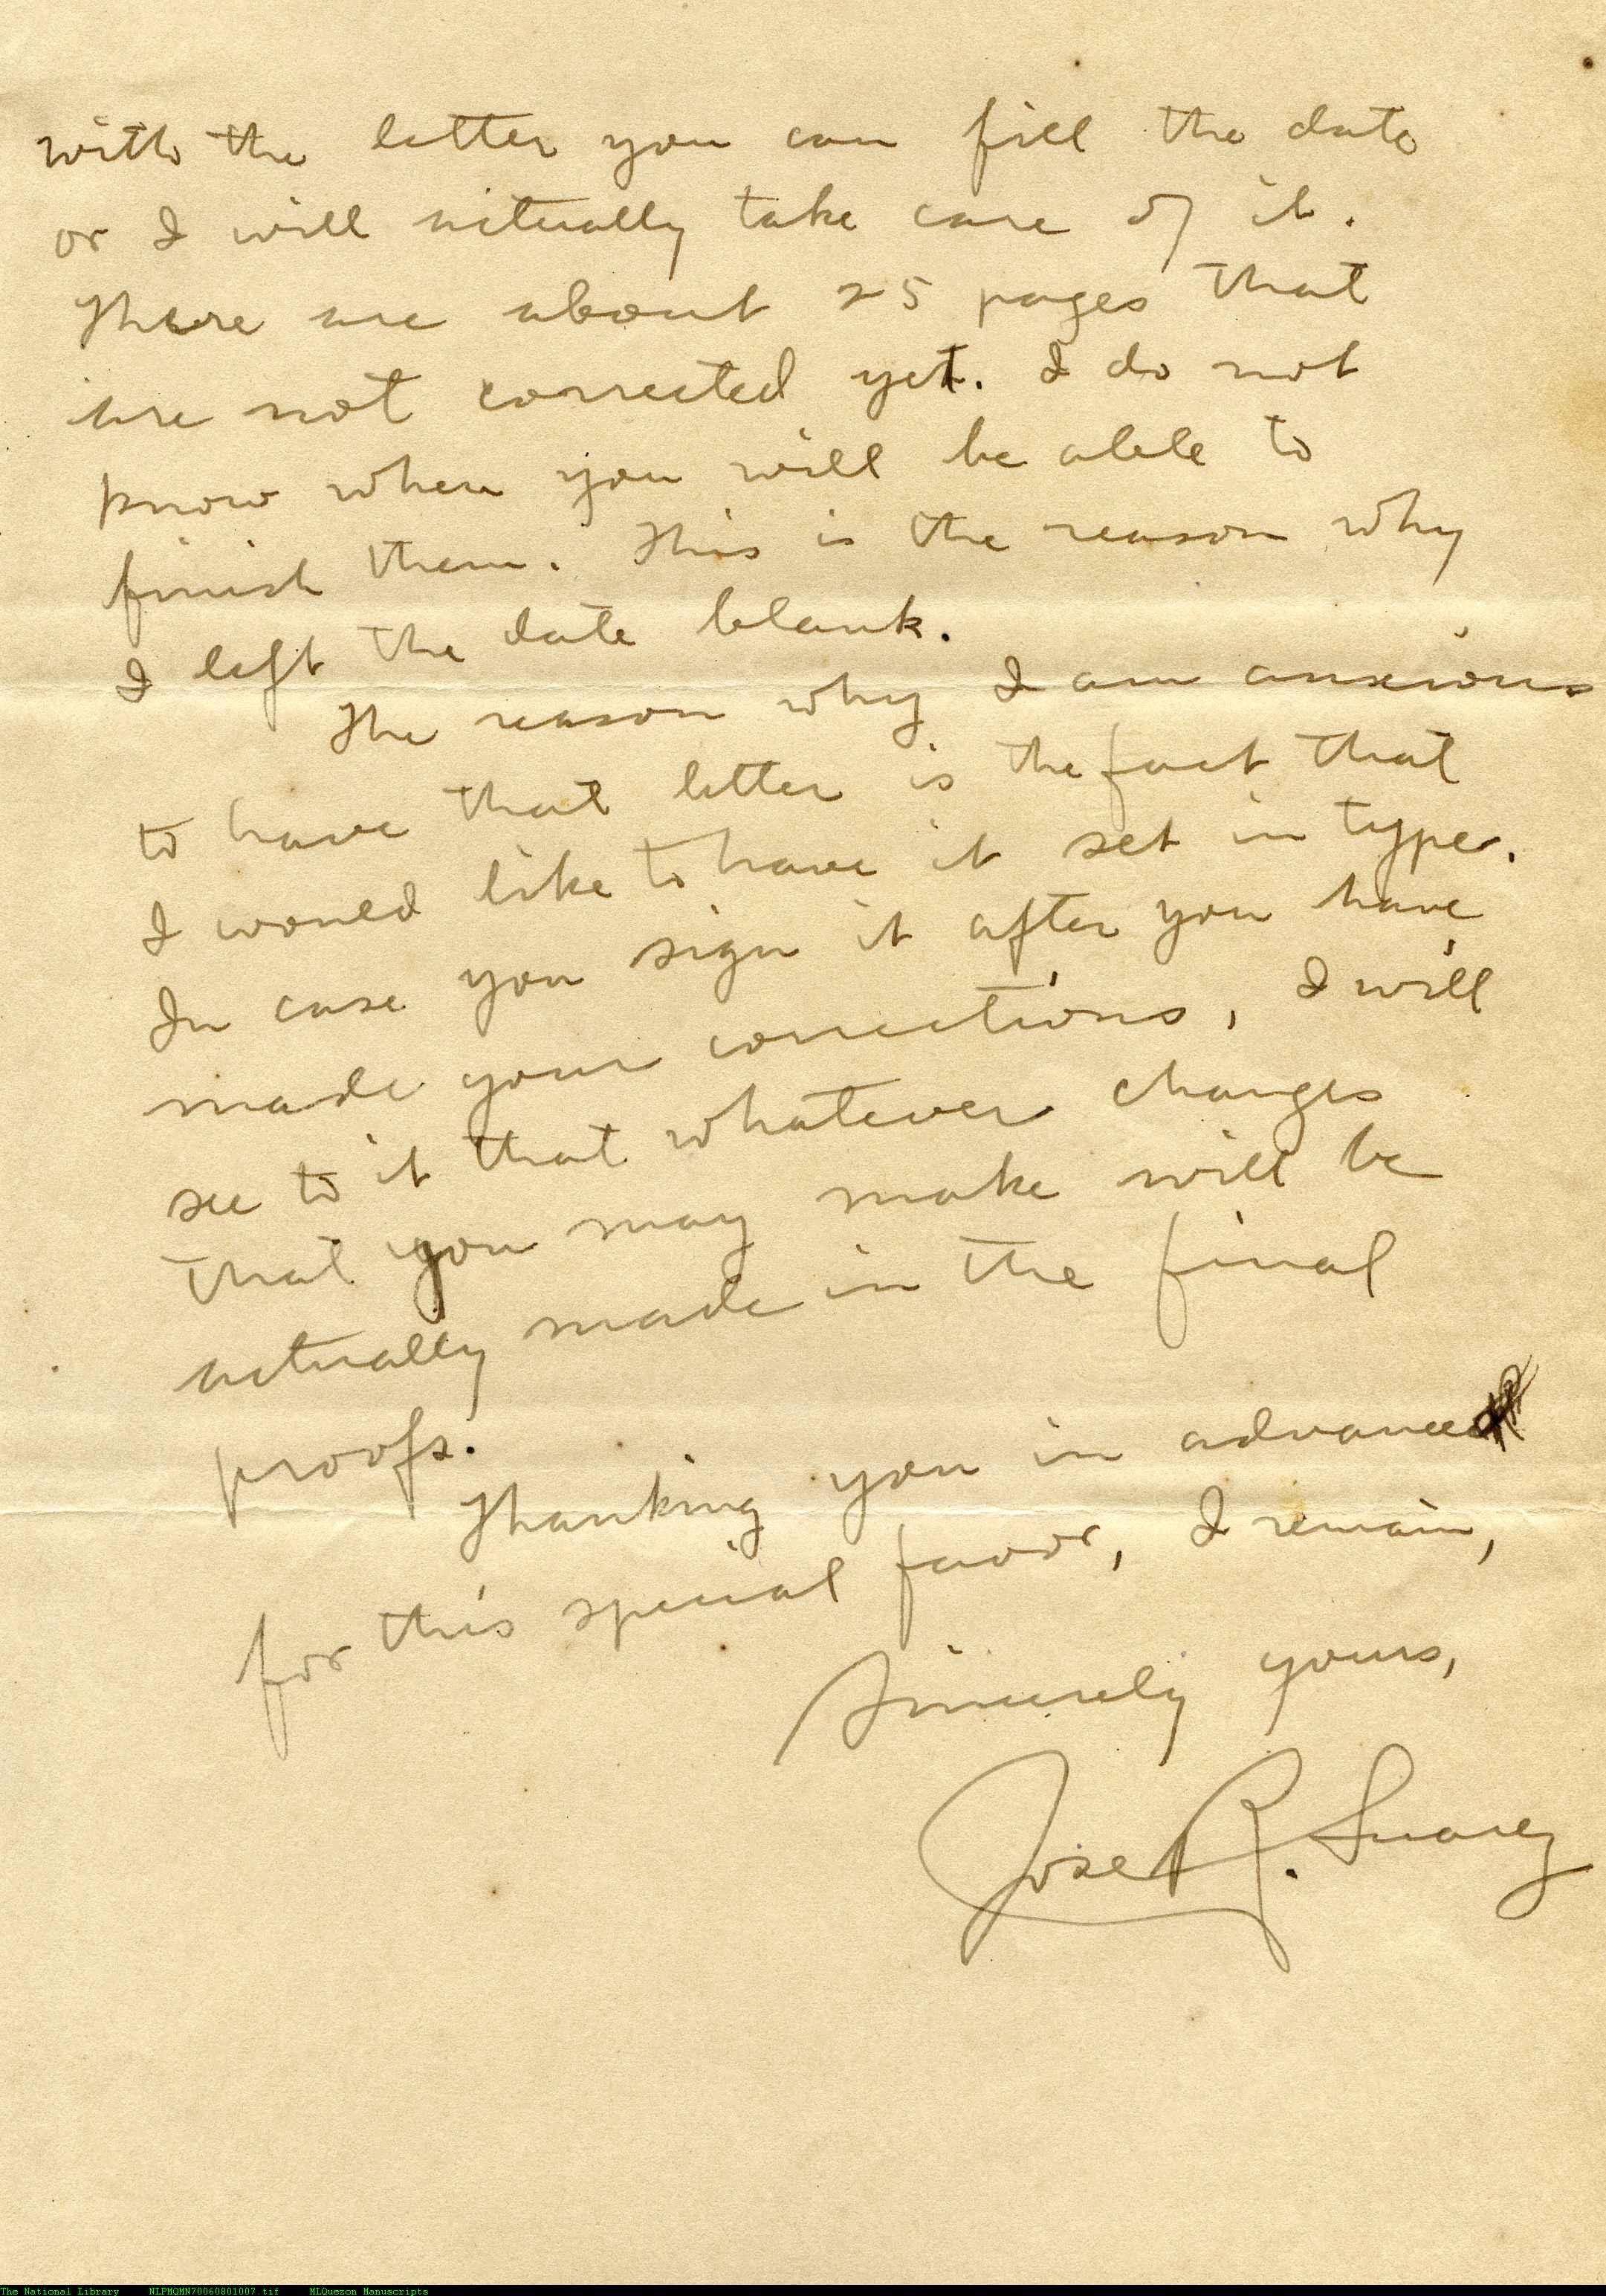 with the letter you can fill the date
or I will actually take care of it.
There are about 25 pages that
are not corrected yet. I do not
know when you will be able to
finish them. This is the reason why
I left the date blank.
The reason why I am anxious
to have that letter is the fact that
I would like to have it set in type.
In case you sign it after you have
made your corrections, I will
see to it that whatever changes
that you may make will be
actually made in the final
proofs.
Thanking you in advance
for this special favor, I remain,
Sincerely yours,
Jose R. Suarez
The National Library NLPMQMN70060801007.tif MLQuezon Manuscripts